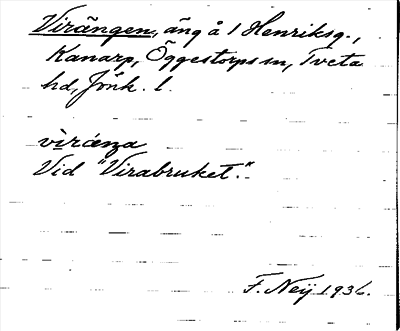 Virängen, äng å 1 Henriksg.,
Kanarp, Öggestorps sn, Tveta
hd, Jönk. l.
Vid "Virabruket."
F. Neij 1936.